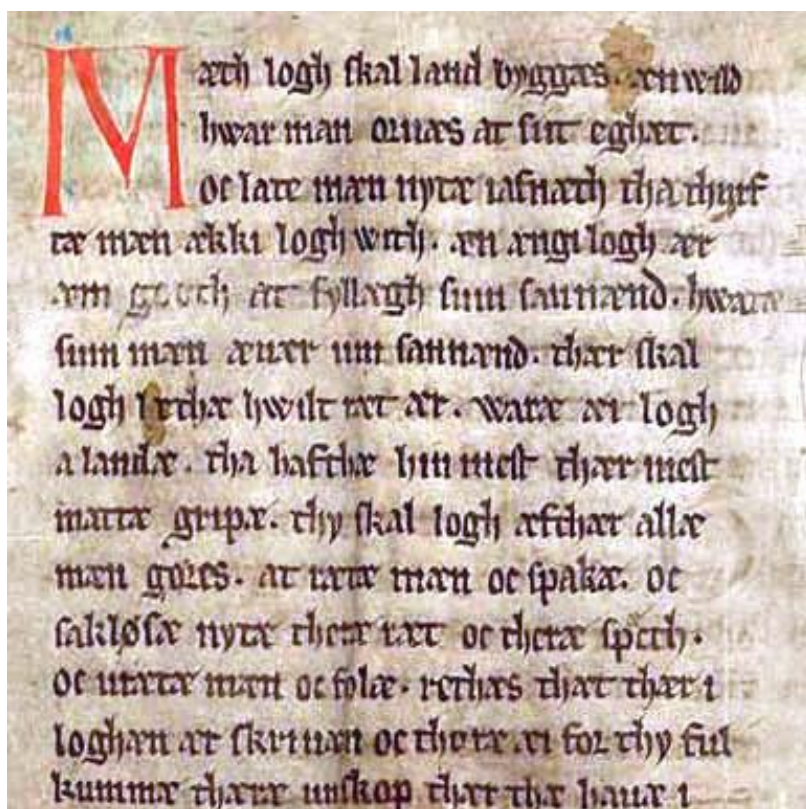 Mæth logh skal land byggæs. æn wild
hwar man oruæs at sitt eghæt.
oc late mæn nytæ iafnæth tha thyrf
tæ mæn ækki logh with. æn ængi logh ær
æm gooth at fyllægh sum sannænd. hwaræ
sum mæn æuær um sannænd. thær skal
logh lethæ hwilt ræt ær. waræ æi logh
a landæ. tha hafthæ hin mest thær mest
mattæ gripæ. thy skal logh æfthær allæ
mæn gøres. at rætæ mæn oc spakæ. oc
sakløsæ nytæ theræ ræt oc theræ spæth.
oc urætæ mæn oc folæ. rethæs that thær i
loghæn ær skriuan oc thoræ æi for thy ful
kummæ theræ unskop thær the hauæ i